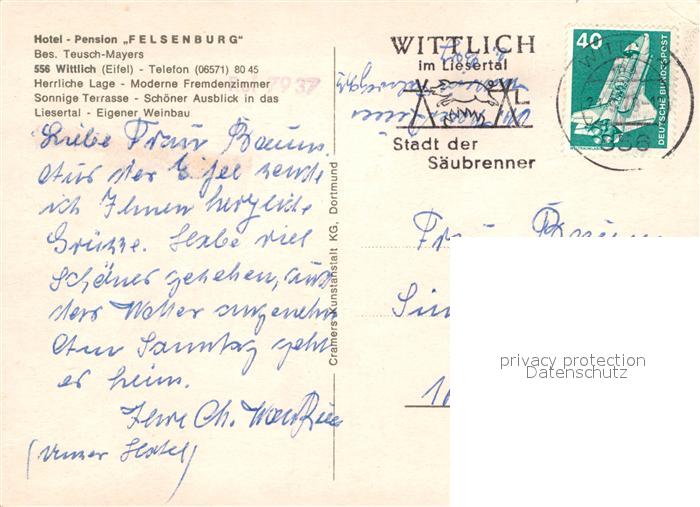 Hotel - Pension „FELSENBURG"
Bes. Teusch-Mayers
556 Wittlich (Eifel) - Telefon (06571) 80 45
Herrliche Lage - Moderne Fremdenzimmer
Sonnige Terrasse - Schöner Ausblick in das
Liesertal - Eigener Weinbau
Liebe Frau Braun.
Aus der Eifel sende
ich Ihnen herzliche
Grüsse. Habe viel
Schönes gesehen, auch
das Wetter angenehm
Am Sonntag geht
es heim.
Ihre Ch.
(Unser Hotel)
Cramers Kunstanstalt KG, Dortmund
WITTLICH
im Liesertal
Stadt der
Säubrenner
40
DEUTSCHE BUNDESPOST
Frau Braun
privacy protection
Datenschutz